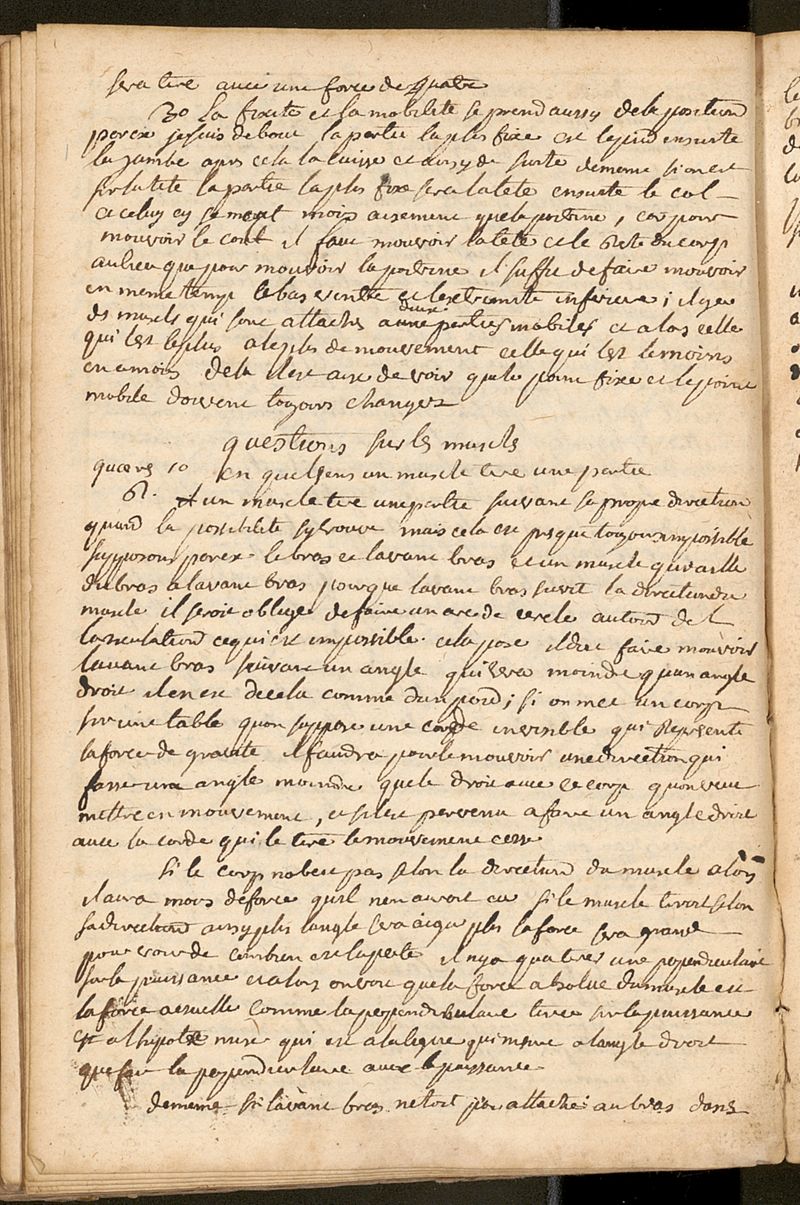 sera tiré avec une force de quatre
3o la fixité et la mobilité se prend aussy de la position
par ex je suis debout la partie la plus fixe est le pied ensuite
la jambe apres cela la cuisse et ainsy de suite de meme si on est
sur la tete la partie la plus fixe sera la tete ensuite le col
et celuy cy se meut mois aisement que la poitrine, car pour
mouvoir le coul il faut mouvoir la tete et le reste du corp
au lieu que pour mouvoir la poitrine il suffit de faire mouvoir
en meme temp le bas ventre et les extremité inferieure; il y a
des muscls qui sont attachés a deux parties mobiles et alos celle
qui lest le plus a le plus de mouvement celle qui lest le moins
en a moins de la il est aisé de voir que le point fixe et le point
mobile doivent toujours changer
questions sur les muscls
quaeres 1o en quel sens un muscle tire une partie
R. un muscle tire une partie suivant sa propre direction
quand la possibilité sy trouve mais cela est presque toujours impossible
supposons par ex. le bras et lavant bras et un muscle qui aille
du bras a lavant bras pour que lavant bras suivit la direction du
muscle il seroit obligé de faire un arc de cercle autour de l
larticulation ce qui est impossible. cela posé il doit faire mouvoir
lavant bras suivant un angle qui sera moindre quun angle
droit il en est de cela comme dun poid; si on met un corp
sur une table quon suppose une corde invisible qui represente
la force de gravité il faudra pour le mouvoir une direction qui
fasse un angle moindre que le droit avec ce corp quon veut
mettre en mouvement, et sil est parvenu a faire un angle droit
avec la corde qui le tire le mouvement cesse
si le corp nobeit pas selon la direction du muscle alors
il aura mois de force quil nen auroit eu si le muscle tiroit selon
sa direction aussy plus langle sera aigu plus la force sera grande
pour voir de combien est la perte il ny a qua tirer une perpendiculaire
sur la puissance et alors on voit que la force absolue du muscle est
la force actuelle comme la perpendiculaire tirée sur la puissance
est a lhipotenuse qui est a la ligne qui mene a langle droit
que fait la perpendiculaire avec la puissance
de meme si lavant bras netoit pas attaché au bras dans